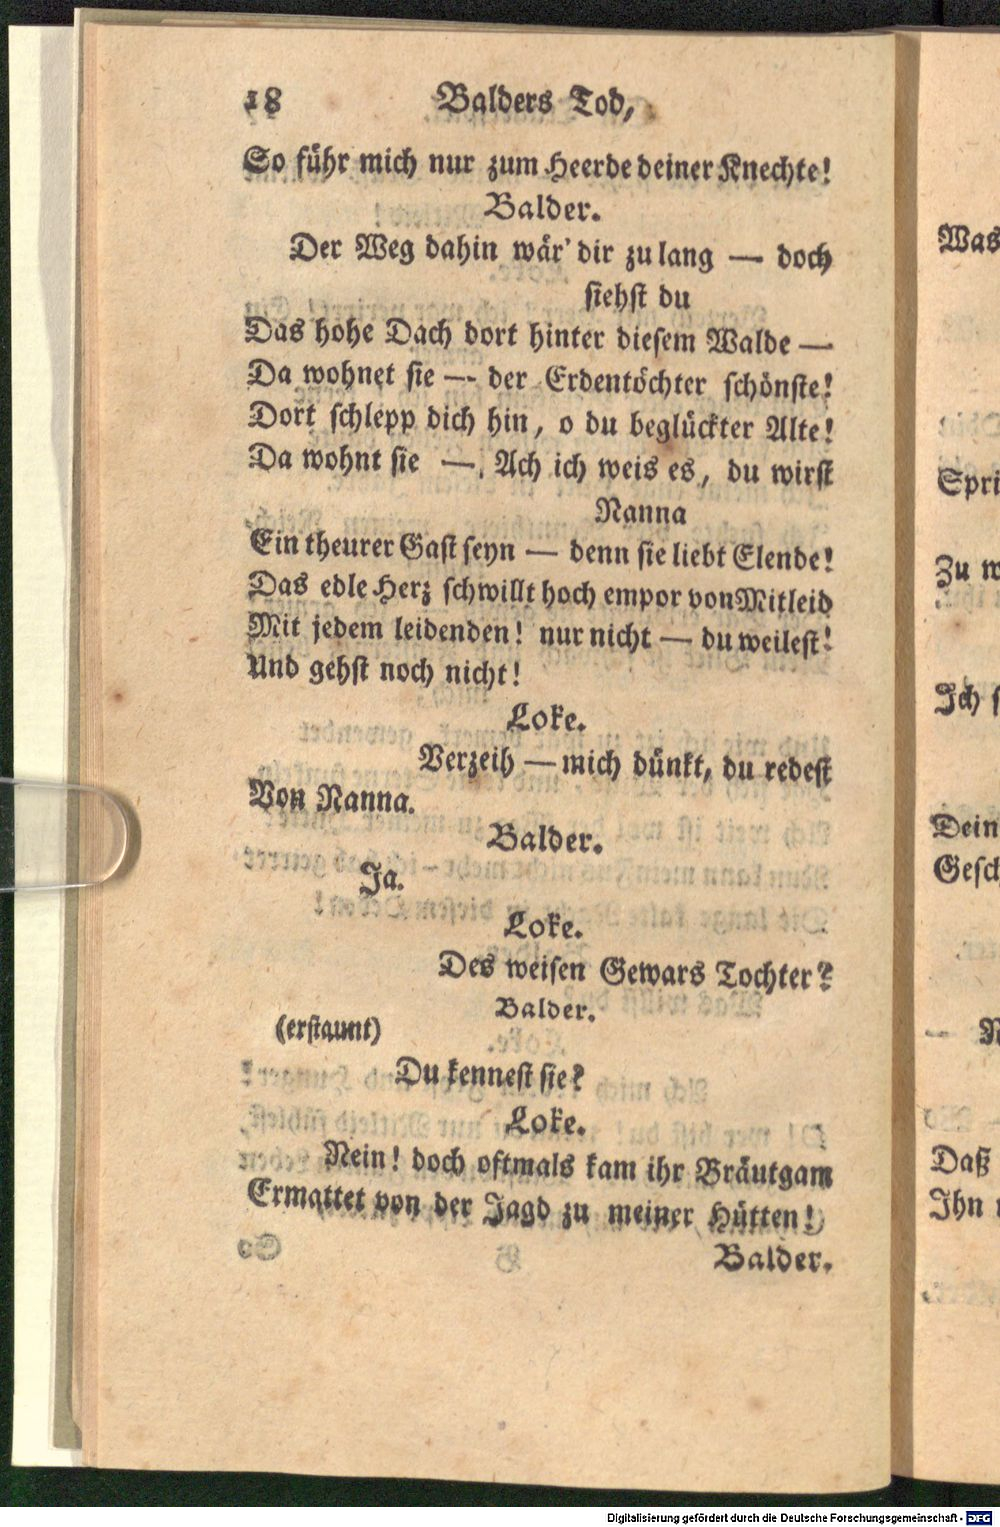 18 Balders Tod,
So führ mich nur zum Heerde deiner Knechte!
Balder.
Der Weg dahin wär' dir zu lang — doch
siehst du
Das hohe Dach dort hinter diesem Walde —
Da wohnet sie — der Erdentöchter schönste!
Dort schlepp dich hin, o du beglückter Alte!
Da wohnt sie —. Ach ich weis es, du wirst
Nanna
Ein theurer Gast seyn — denn sie liebt Elende!
Das edle Herz schwillt hoch empor von Mitleid
Mit jedem leidenden! nur nicht — du weilest!
Und gehst noch nicht!
Loke.
Verzeih — mich dünkt, du redest
Von Nanna.
Balder.
Ja.
Loke.
Des weisen Gewars Tochter?
Balder.
(erstaunt)
Du kennest sie?
Loke.
Nein! doch oftmals kam ihr Bräutgam
Ermattet von der Jagd zu meiner Hütten!
Balder.
Was
Spri
Zu w
Ich s
Dein
Gesch
Daß
Ihn
Digitalisierung gefördert durch die Deutsche Forschungsgemeinschaft - DFG